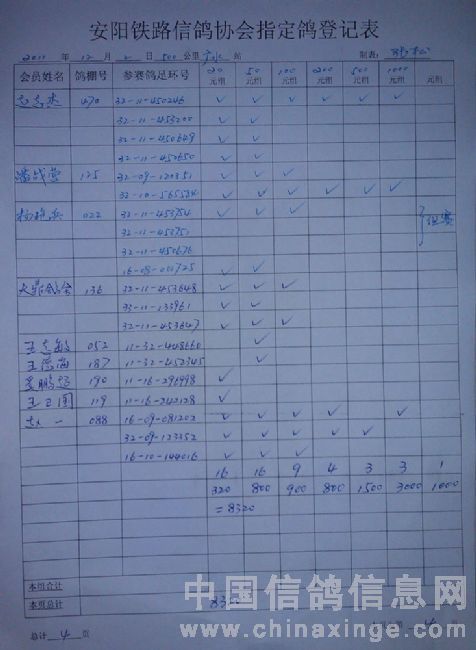 安阳铁路信鸽协会指定鸽登记表
2011 年 12 月 2 日 500 公里 制表:
会员姓名 鸽棚号 参赛鸽足环号 20元组 50元组 100元组 200元组 500元组 1000元组 元组
470 32-11-450246 ✓ ✓ ✓ ✓ ✓ ✓
32-11-453200 ✓ ✓
32-11-450649 ✓ ✓
32-11-450650 ✓ ✓
125 32-09-120351 ✓ ✓ ✓
32-10-565534 ✓ ✓ ✓ ✓ ✓ ✓
022 32-11-453754 ✓ ✓ ✓
32-11-453751
32-11-450676
16-08-001725 ✓ ✓
136 32-11-453648 ✓ ✓ ✓
33-11-133961 ✓ ✓
32-11-453647 ✓ ✓ ✓
王志敏 052 11-32-448660 ✓
187 11-32-452345 ✓
姜鹏超 190 11-16-296998 ✓
119 11-16-242128 ✓
赵一 088 16-09-081202 ✓ ✓ ✓ ✓ ✓
32-09-123352 ✓ ✓ ✓ ✓ ✓
16-10-144016 ✓ ✓ ✓
16 16 9 4 3 3 1
320 800 900 800 1500 3000 1000
=8320
本组合计
本页总计 8320
总计 4 页
中国信鸽信息网
www.chinaxinge.com